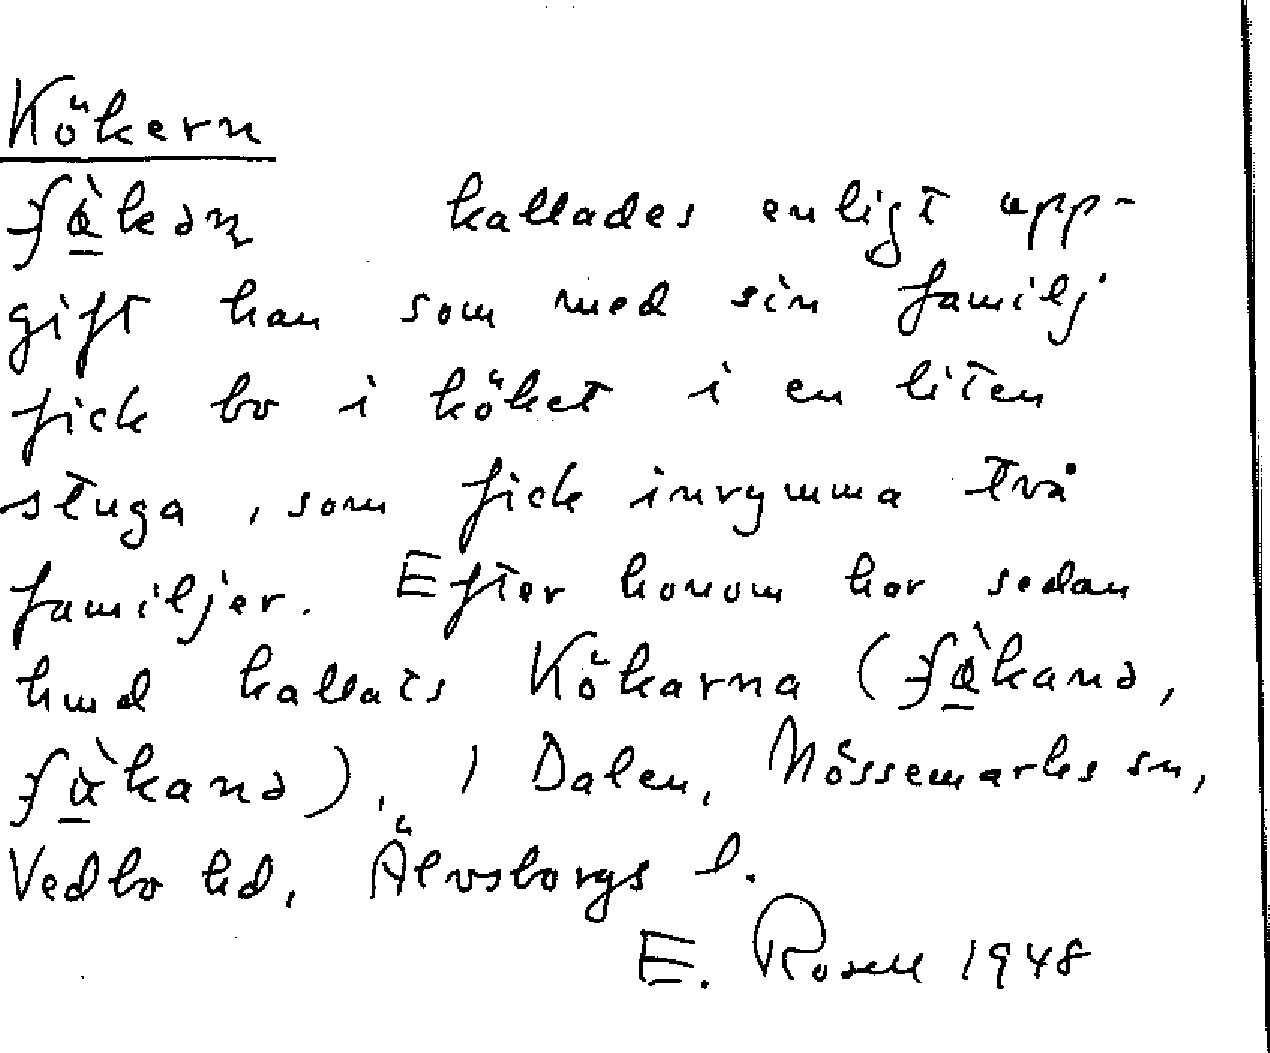 Kökern
kallades enligt upp-
gift han som med sin familj
fick bo i köket i en liten
stuga, som fick inrymma två
familjer. Efter honom har sedan
kallats Kökarna (
) Dalen, Nössemarks sn,
Vedbo hd, Älvsborgs l.
E. Rosell 1948